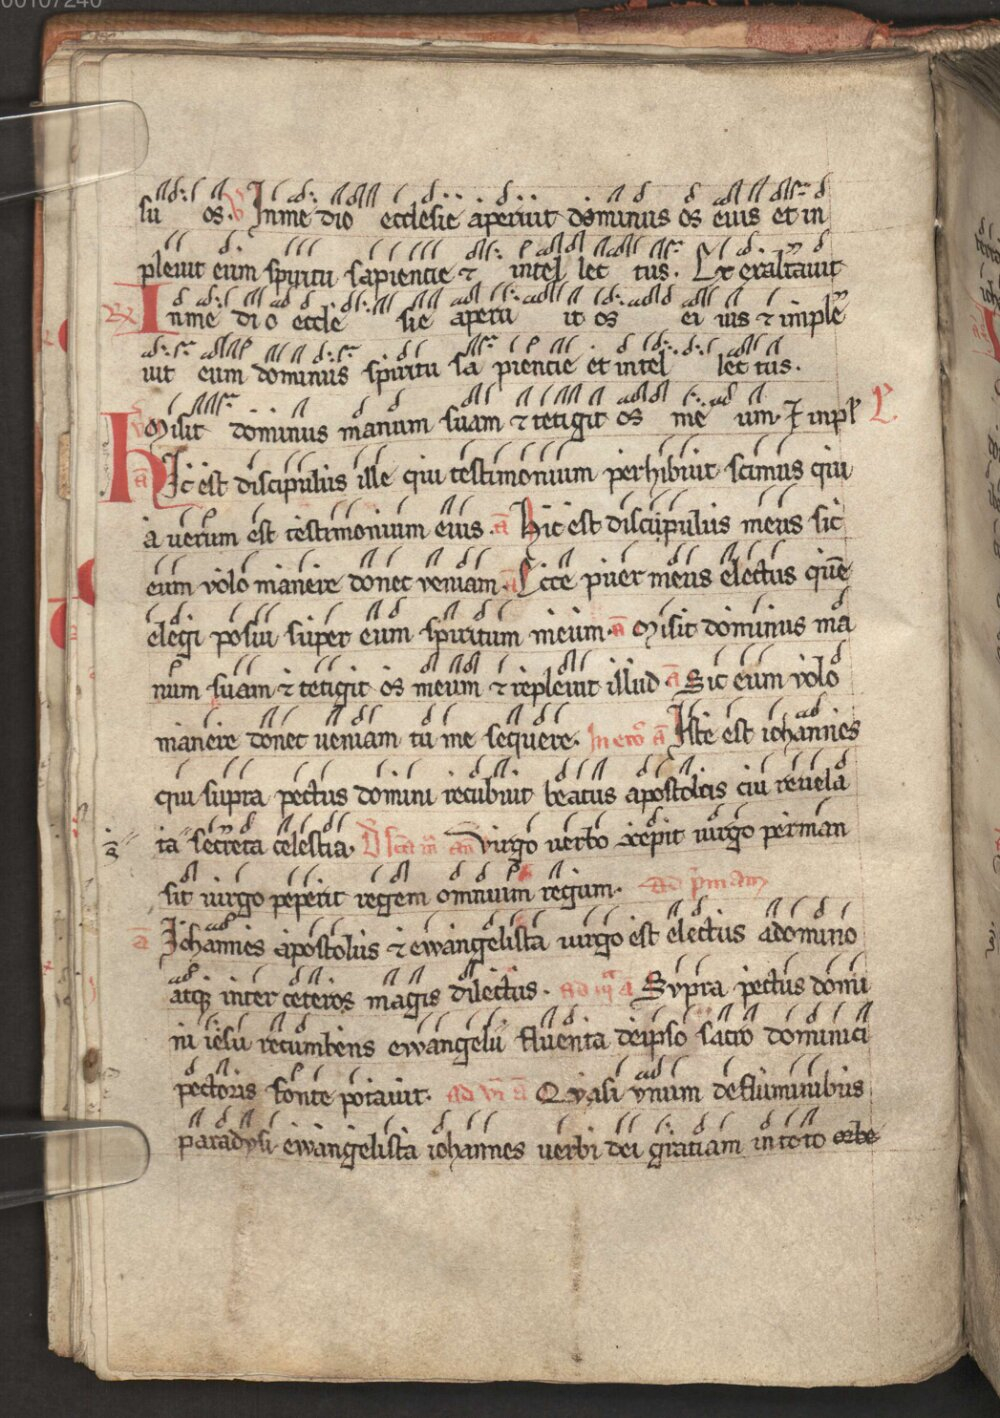 00107240
su os. V Inme dio ecclesie aperuit dominus os eius et in
pleuit eum spiritu sapiencie ⁊ intel lec tus. Et exaltauit
Rx Inme di o eccle sie aperu it os ei ius ⁊ implē
uit eum dominus spiritu sa piencie et intel lec tus.
V Misit dominus manum suam ⁊ tetigit os me um. Et inpl L.
ā Hic est discipulus ille qui testimonium perhibuit scimus qui
a uerum est testimonium eius. ā Hic est discipulus meus sic
eum volo manere donec veniam. ā Ecce puer meus electus quē
elegi posui super eum spiritum meum. ā Misit dominus ma
num suam ⁊ tetigit os meum ⁊ repleuit illud ā Sic eum volo
manere donec ueniam tu me sequere. In ... ā Iste est iohannes
qui supra pectus domini recubuit beatus apostolus cui reuela
ta secreta celestia. ... an̄ Virgo uerbo ... uirgo perman
sit uirgo peperit regem omnium regum. ad pmam
ā Iohannes apostolus ⁊ ewangelista uirgo est electus adomino
atq; inter ceteros magis dilectus. ad iij ā Supra pectus domi
ni iesu recumbens ewangelii fluenta deipso sacro dominici
pectoris fonte potauit. ad vi ā Quasi vnum defluminibus
paradysi ewangelista iohannes uerbi dei gratiam in toto orbe